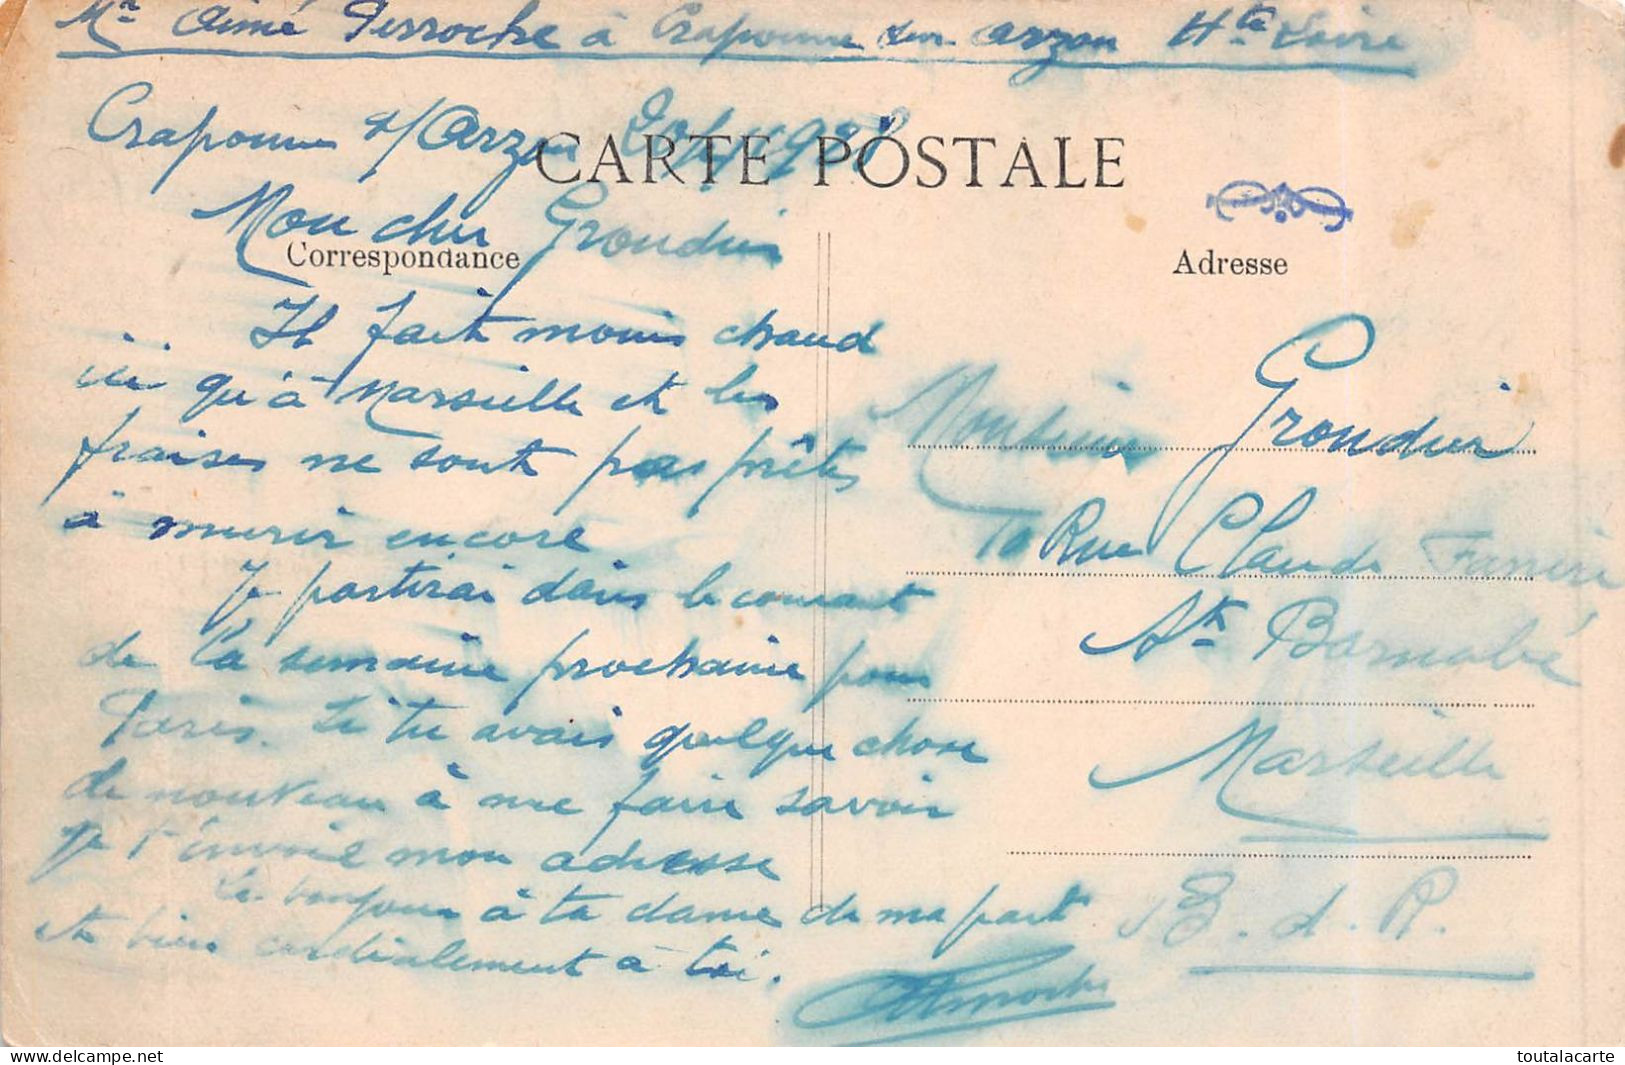 Mr Aimé Perroche à Craponne sur Arzon Hte Loire
Craponne s/Arzon
CARTE POSTALE
Mon cher Grondin
Correspondance
Il fait moins chaud
ici qu'à Marseille et les
fraises ne sont pas prêtes
à murir encore
Je partirai dans le courant
de la semaine prochaine pour
Paris. Si tu avais quelque chose
de nouveau à me faire savoir
je t'envoie mon adresse
Le bonjour à ta dame de ma part
et bien cordialement à toi.
APerroche
Adresse
Monsieur Grondin
10 Rue Claude Farrère
St Barnabé
Marseille
B. d. R.
toutalacarte